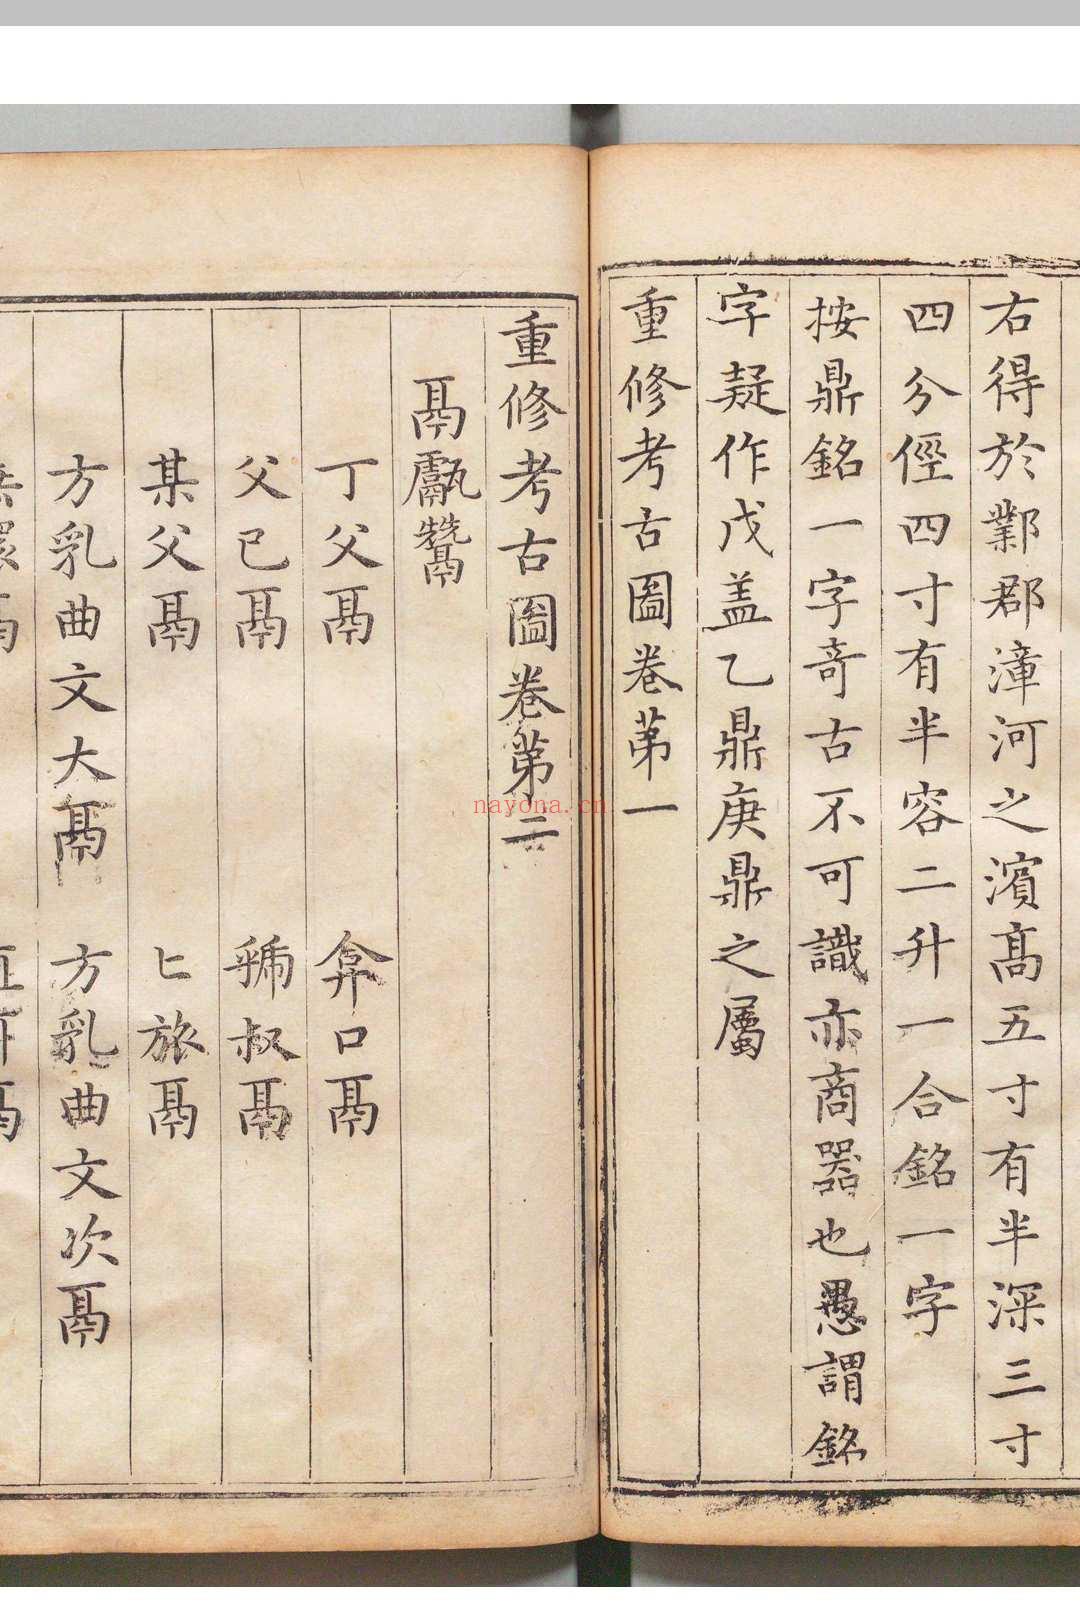 右得於鄴郡漳河之濱髙五寸有半深三寸
四分徑四寸有半容二升一合銘一字
按鼎銘一字奇古不可識亦商器也愚謂銘
字疑作戊盖乙鼎庚鼎之屬
重修考古圖卷第一
重修考古圖卷第二
鬲甗鬵
丁父鬲 弇口鬲
父己鬲 虢叔鬲
某父鬲 匕旅鬲
方乳曲文大鬲 方乳曲文次鬲
nayona.cn